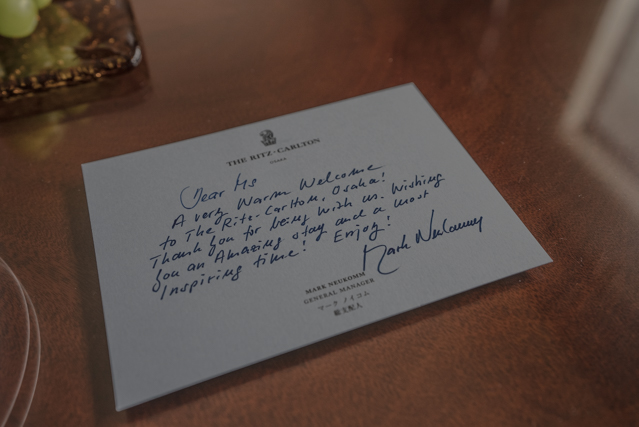 THE RITZ-CARLTON
OSAKA
Dear Ms
A very Warm Welcome
to The Ritz-Carlton, Osaka!
Thank you for being with us. Wishing
you an Amazing stay and a most
Inspiring time! Enjoy!
Mark Neukomm
MARK NEUKOMM
GENERAL MANAGER
マーク ノイコム
総支配人